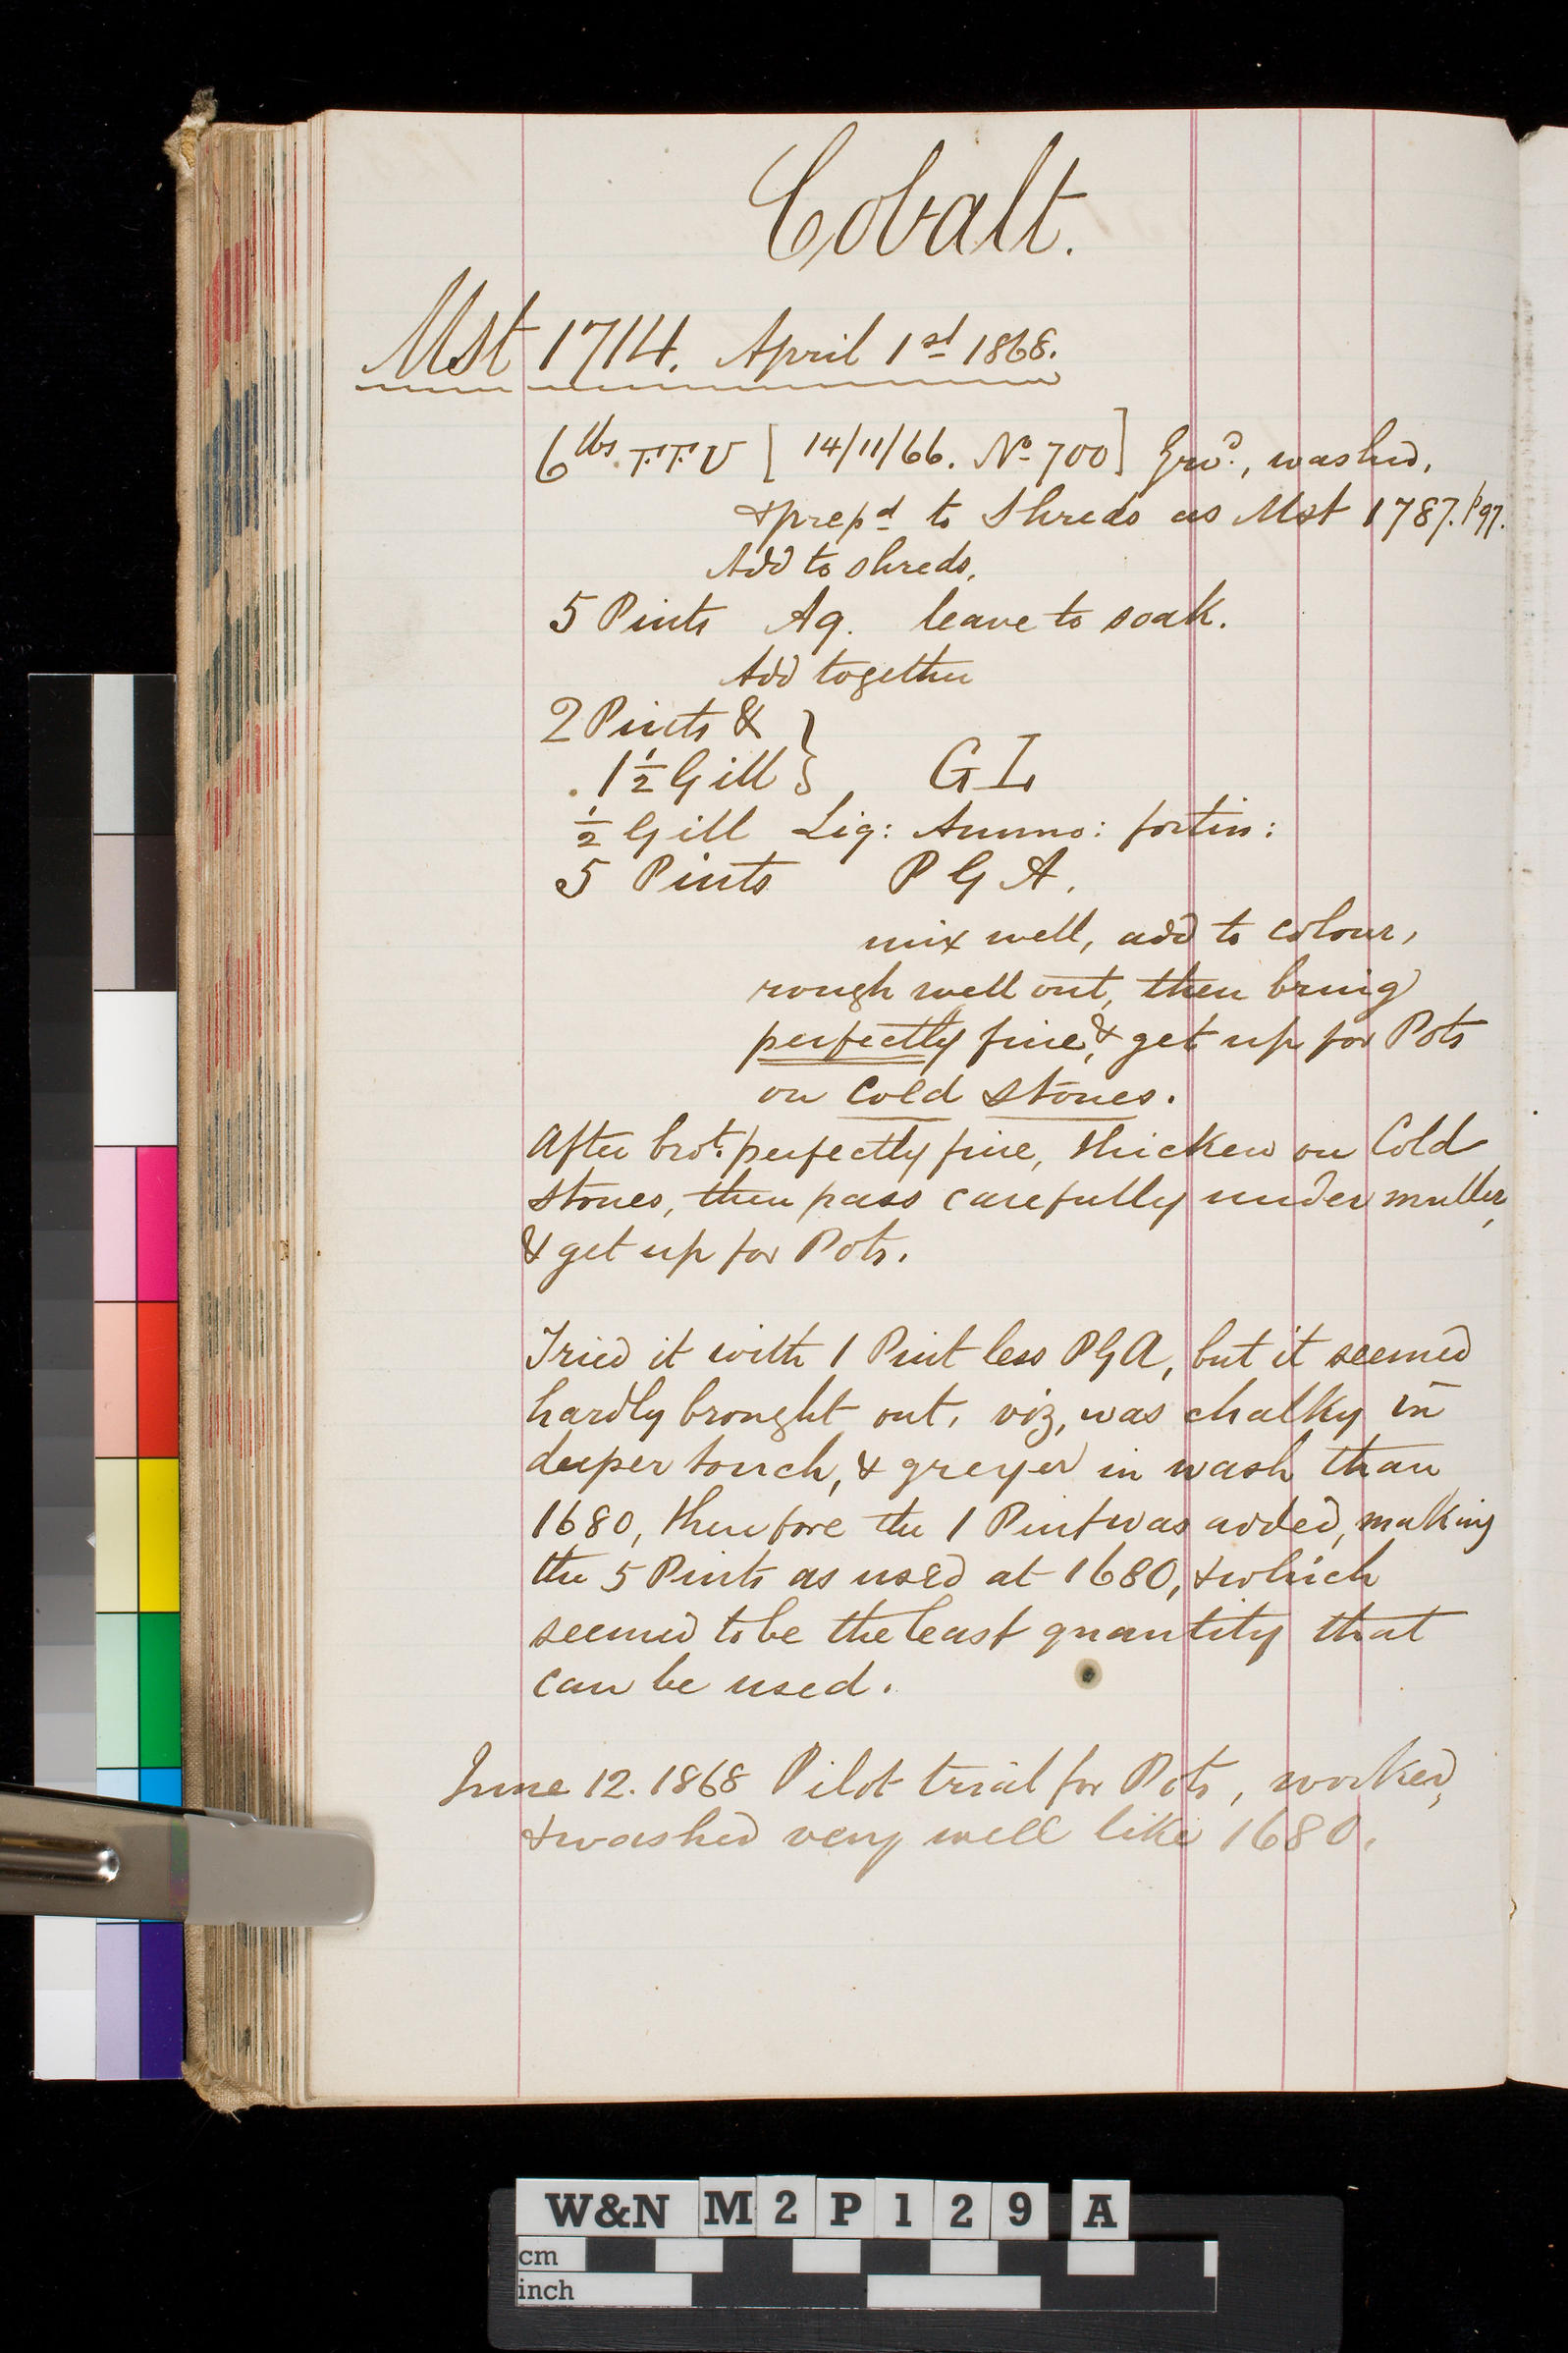 Cobalt.
Mst 1714. April 1st 1868.
6 lbs. F.F.U [14/11/66. No 700] Grd., washed,
& prepd to Shreds as Mst 1787. P97.
Add to shreds,
5 Pints Aq. leave to soak.
Add together
2 Pints & }
1 1/2 Gill } GL
1/2 Gill Liq: Ammo: fortis:
5 Pints PGA.
mix well, add to colour,
rough well out, then bring
perfectly fine, & get up for Pots
on Cold stones.
After brot. perfectly fine, thicken on Cold
stones, then pass carefully under muller,
& get up for Pots.
Tried it with 1 Pint less PGA, but it seemed
hardly brought out, viz, was chalky in
deeper touch, & greyer in wash than
1680, therefore the 1 Pint was added, making
the 5 Pints as used at 1680, & which
seemed to be the least quantity that
can be used.
June 12. 1868 Pilot trial for Pots, worked,
& washed very well like 1680.
W&N M2P129 A
cm
inch